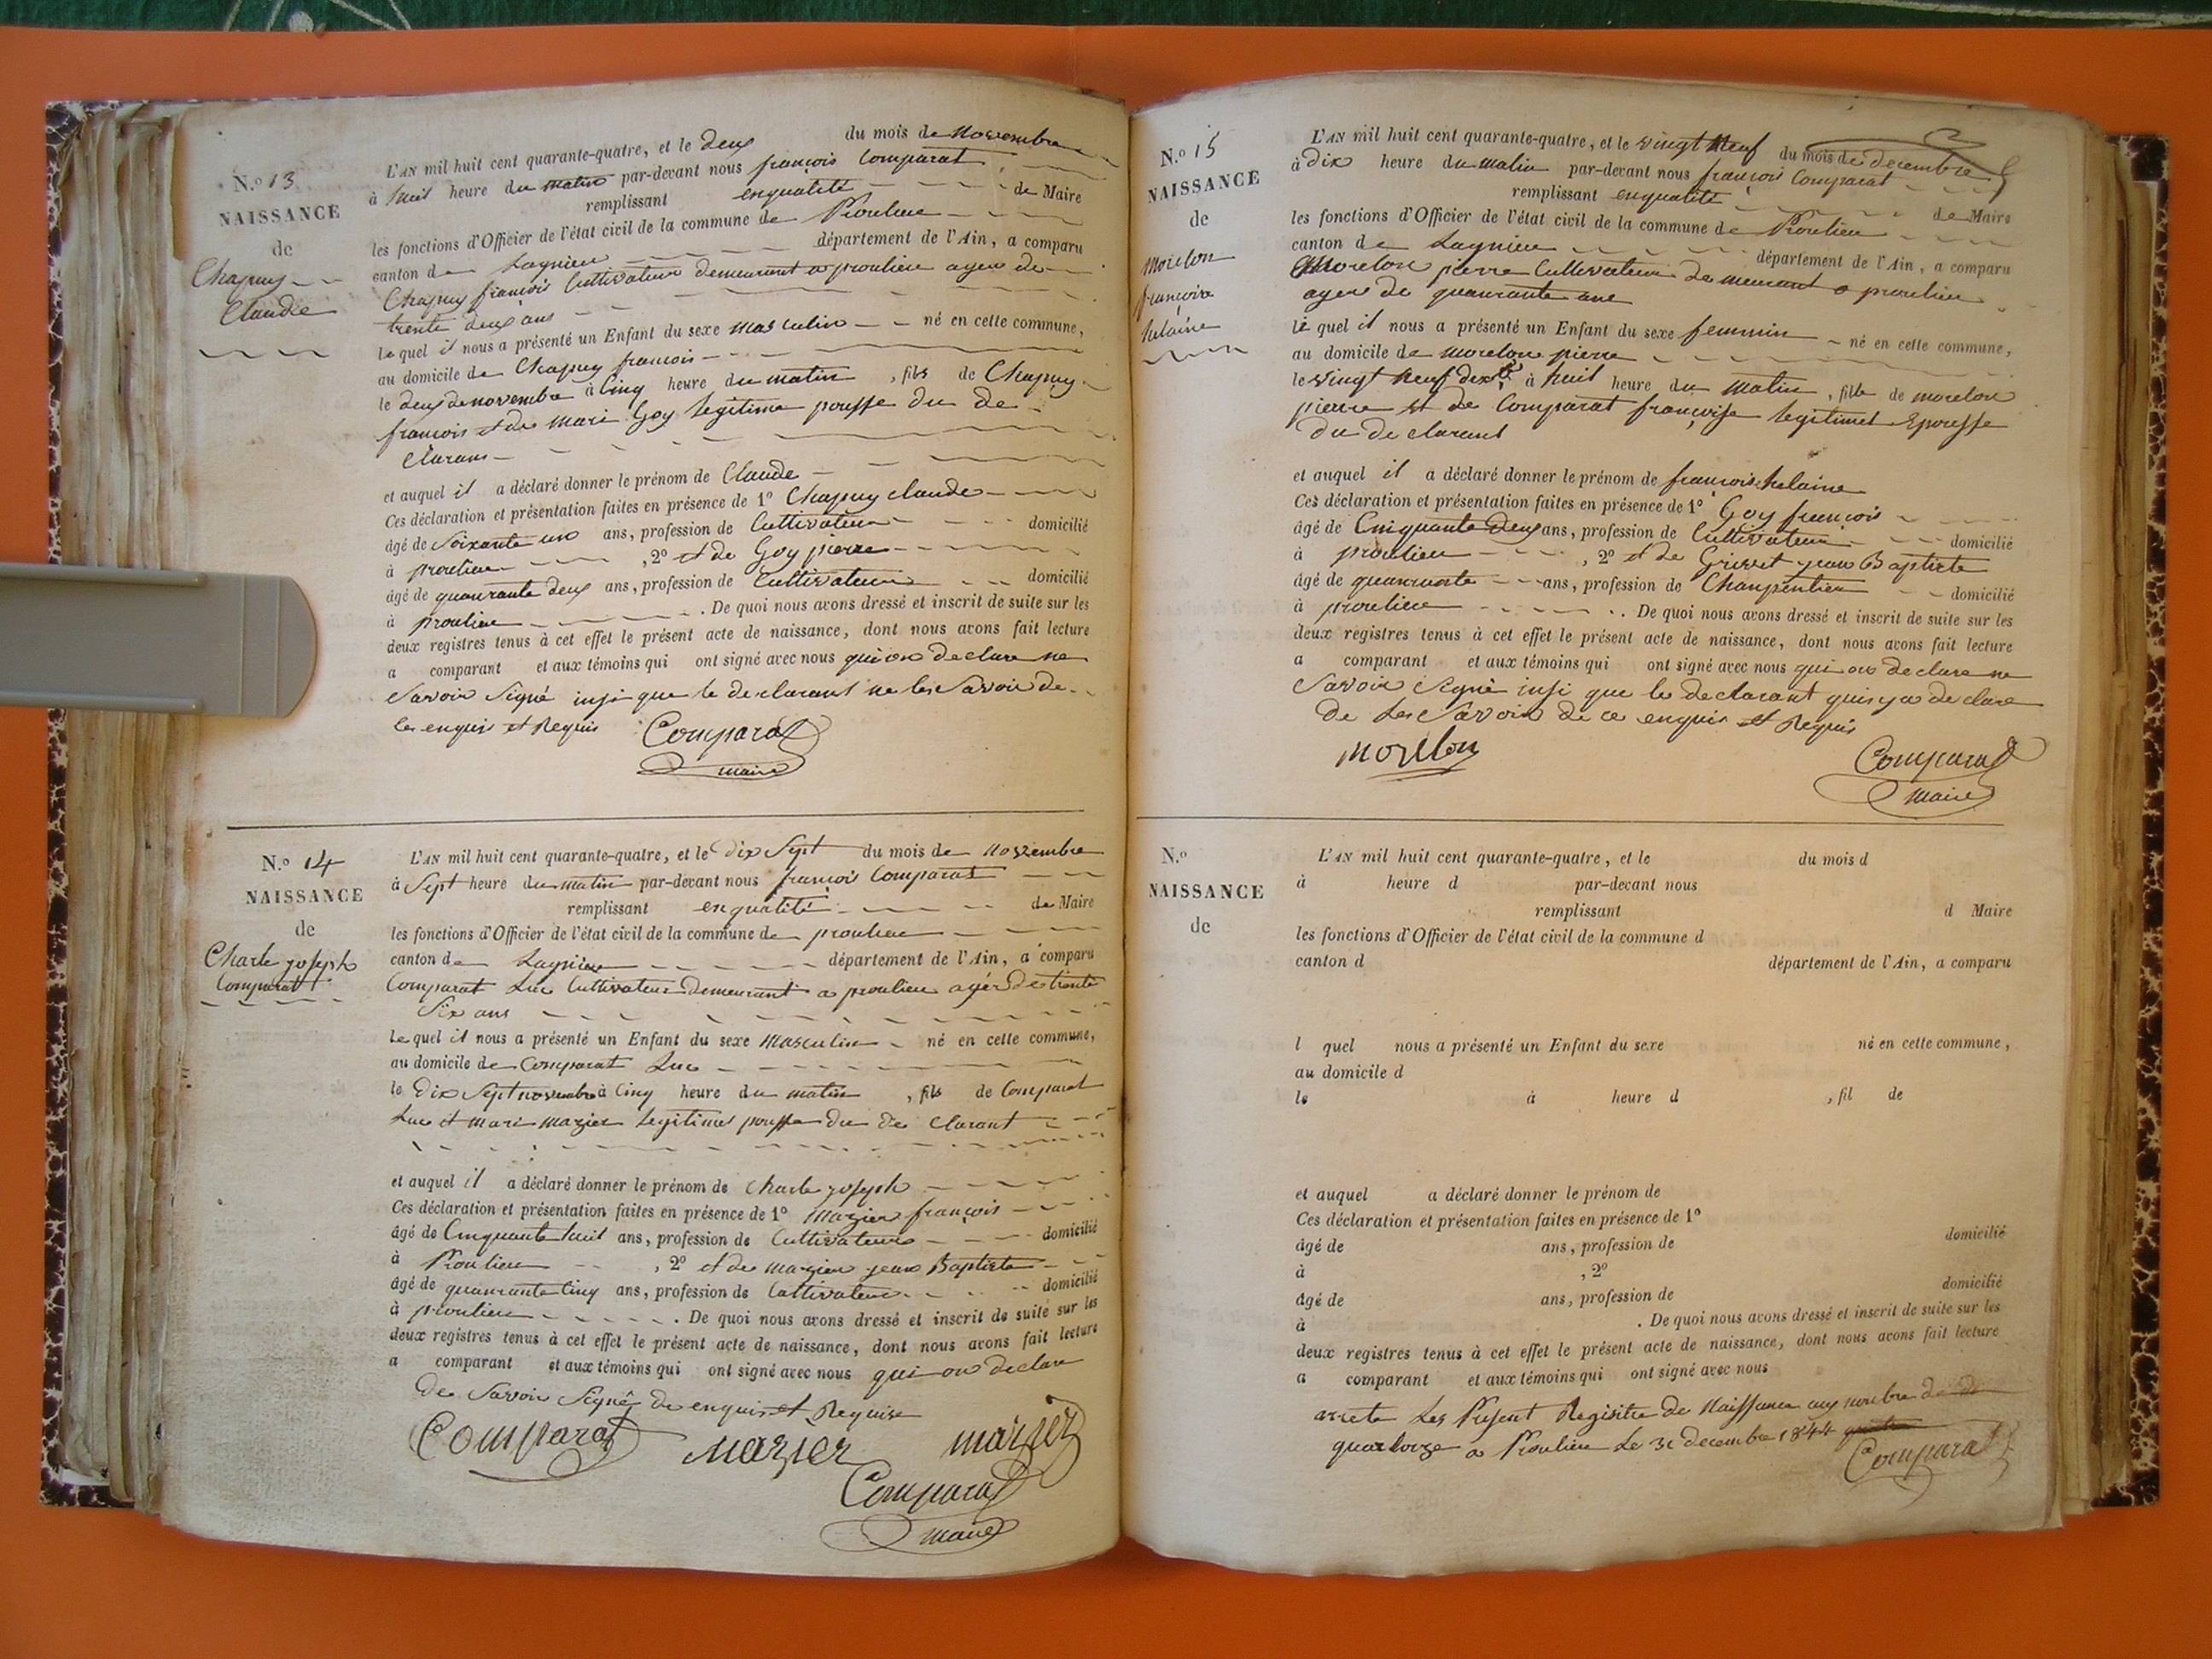 N.o 13
NAISSANCE
de
Chapuy
Claude
L'AN mil huit cent quarante-quatre, et le deux du mois de Novembre
à huit heure du matin par-devant nous françois Comparat
remplissant enqualité de Maire
les fonctions d'Officier de l'état civil de la commune de Proulieu
canton de Lagnieu département de l'Ain, a comparu
Chapuy françois Cultivateur demeurant a proulieu ager de
trente deux ans
lequel il nous a présenté un Enfant du sexe masculin né en cette commune,
au domicile de Chapuy francois
le deux de novembre à Cinq heure du matin, fils de Chapuy
francois et de mari Goy legitime pousse du de
Clarans
et auquel il a déclaré donner le prénom de Claude
Ces déclaration et présentation faites en présence de 1o Chapuy claude
âgé de Soixante un ans, profession de Cultivateur domicilié
à proulieu, 2o et de Goy pierre
âgé de quanrante deux ans, profession de Cultivateur domicilié
à proulieu. De quoi nous avons dressé et inscrit de suite sur les
deux registres tenus à cet effet le présent acte de naissance, dont nous avons fait lecture
a comparant et aux témoins qui ont signé avec nous qui on declare ne
Savoir Signé insi que le declarant ne les Savoir de
les enquis et Requis
Comparat
maire
N.o 14
NAISSANCE
de
Charle joseph
Comparat
L'AN mil huit cent quarante-quatre, et le dix Sept du mois de Novembre
à Sept heure du matin par-devant nous françois Comparat
remplissant enqualité de Maire
les fonctions d'Officier de l'état civil de la commune de proulieu
canton de Lagnieu département de l'Ain, a comparu
Comparat Luc Cultivateur demeurant a proulieu ager de trente
Six ans
lequel il nous a présenté un Enfant du sexe Masculin né en cette commune,
au domicile de Comparat Luc
le Dix Sept novembre à Cinq heure du matin, fils de Comparat
Luc et mari mazier legitime pousse du de Clarant
et auquel il a déclaré donner le prénom de Charle joseph
Ces déclaration et présentation faites en présence de 1o Mazier françois
âgé de Cinquante huit ans, profession de Cultivateur domicilié
à Proulieu, 2o et de mazier jean Baptiste
âgé de quanrante Cinq ans, profession de Cultivateur domicilié
à proulieu. De quoi nous avons dressé et inscrit de suite sur les
deux registres tenus à cet effet le présent acte de naissance, dont nous avons fait lecture
a comparant et aux témoins qui ont signé avec nous qui on declare
de Savoir Signé de enquis et Requis
Comparat Mazier mazier
Comparat
maire
N.o 15
NAISSANCE
de
Morelon
françoise
helaine
L'AN mil huit cent quarante-quatre, et le vingt Neuf du mois de decembre
à dix heure du matin par-devant nous françois Comparat
remplissant enqualité de Maire
les fonctions d'Officier de l'état civil de la commune de Proulieu
canton de Lagnieu département de l'Ain, a comparu
Morelon pierre Cultivateur demeurant a proulieu
ager de quanrante ans
lequel il nous a présenté un Enfant du sexe feminin né en cette commune,
au domicile de Morelon pierre
le vingt Neuf à huit heure du Matin, fille de morelon
pierre et de Comparat françoise legitimes Epousse
du de clarant
et auquel il a déclaré donner le prénom de françoise helaine
Ces déclaration et présentation faites en présence de 1o Goy francois
âgé de Cinquante Deux ans, profession de Cultivateur domicilié
à proulieu, 2o et de jean Baptiste
âgé de quanrante ans, profession de Charpentier domicilié
à proulieu. De quoi nous avons dressé et inscrit de suite sur les
deux registres tenus à cet effet le présent acte de naissance, dont nous avons fait lecture
a comparant et aux témoins qui ont signé avec nous qui on declare ne
Savoir Signé insi que le declarant declare
de Les Savoir de ce enquis et Requis
morelon
Comparat
maire
N.o
NAISSANCE
de
L'AN mil huit cent quarante-quatre, et le du mois d
à heure d par-devant nous
remplissant d Maire
les fonctions d'Officier de l'état civil de la commune d
canton d département de l'Ain, a comparu
l quel nous a présenté un Enfant du sexe né en cette commune,
au domicile d
le à heure d, fil de
et auquel a déclaré donner le prénom de
Ces déclaration et présentation faites en présence de 1o
âgé de ans, profession de domicilié
à, 2o
âgé de ans, profession de domicilié
à. De quoi nous avons dressé et inscrit de suite sur les
deux registres tenus à cet effet le présent acte de naissance, dont nous avons fait lecture
a comparant et aux témoins qui ont signé avec nous
arrete Les Present Registre de Naissance au nombre de
quartorze a Proulieu Le 31 decembre 1844
Comparat